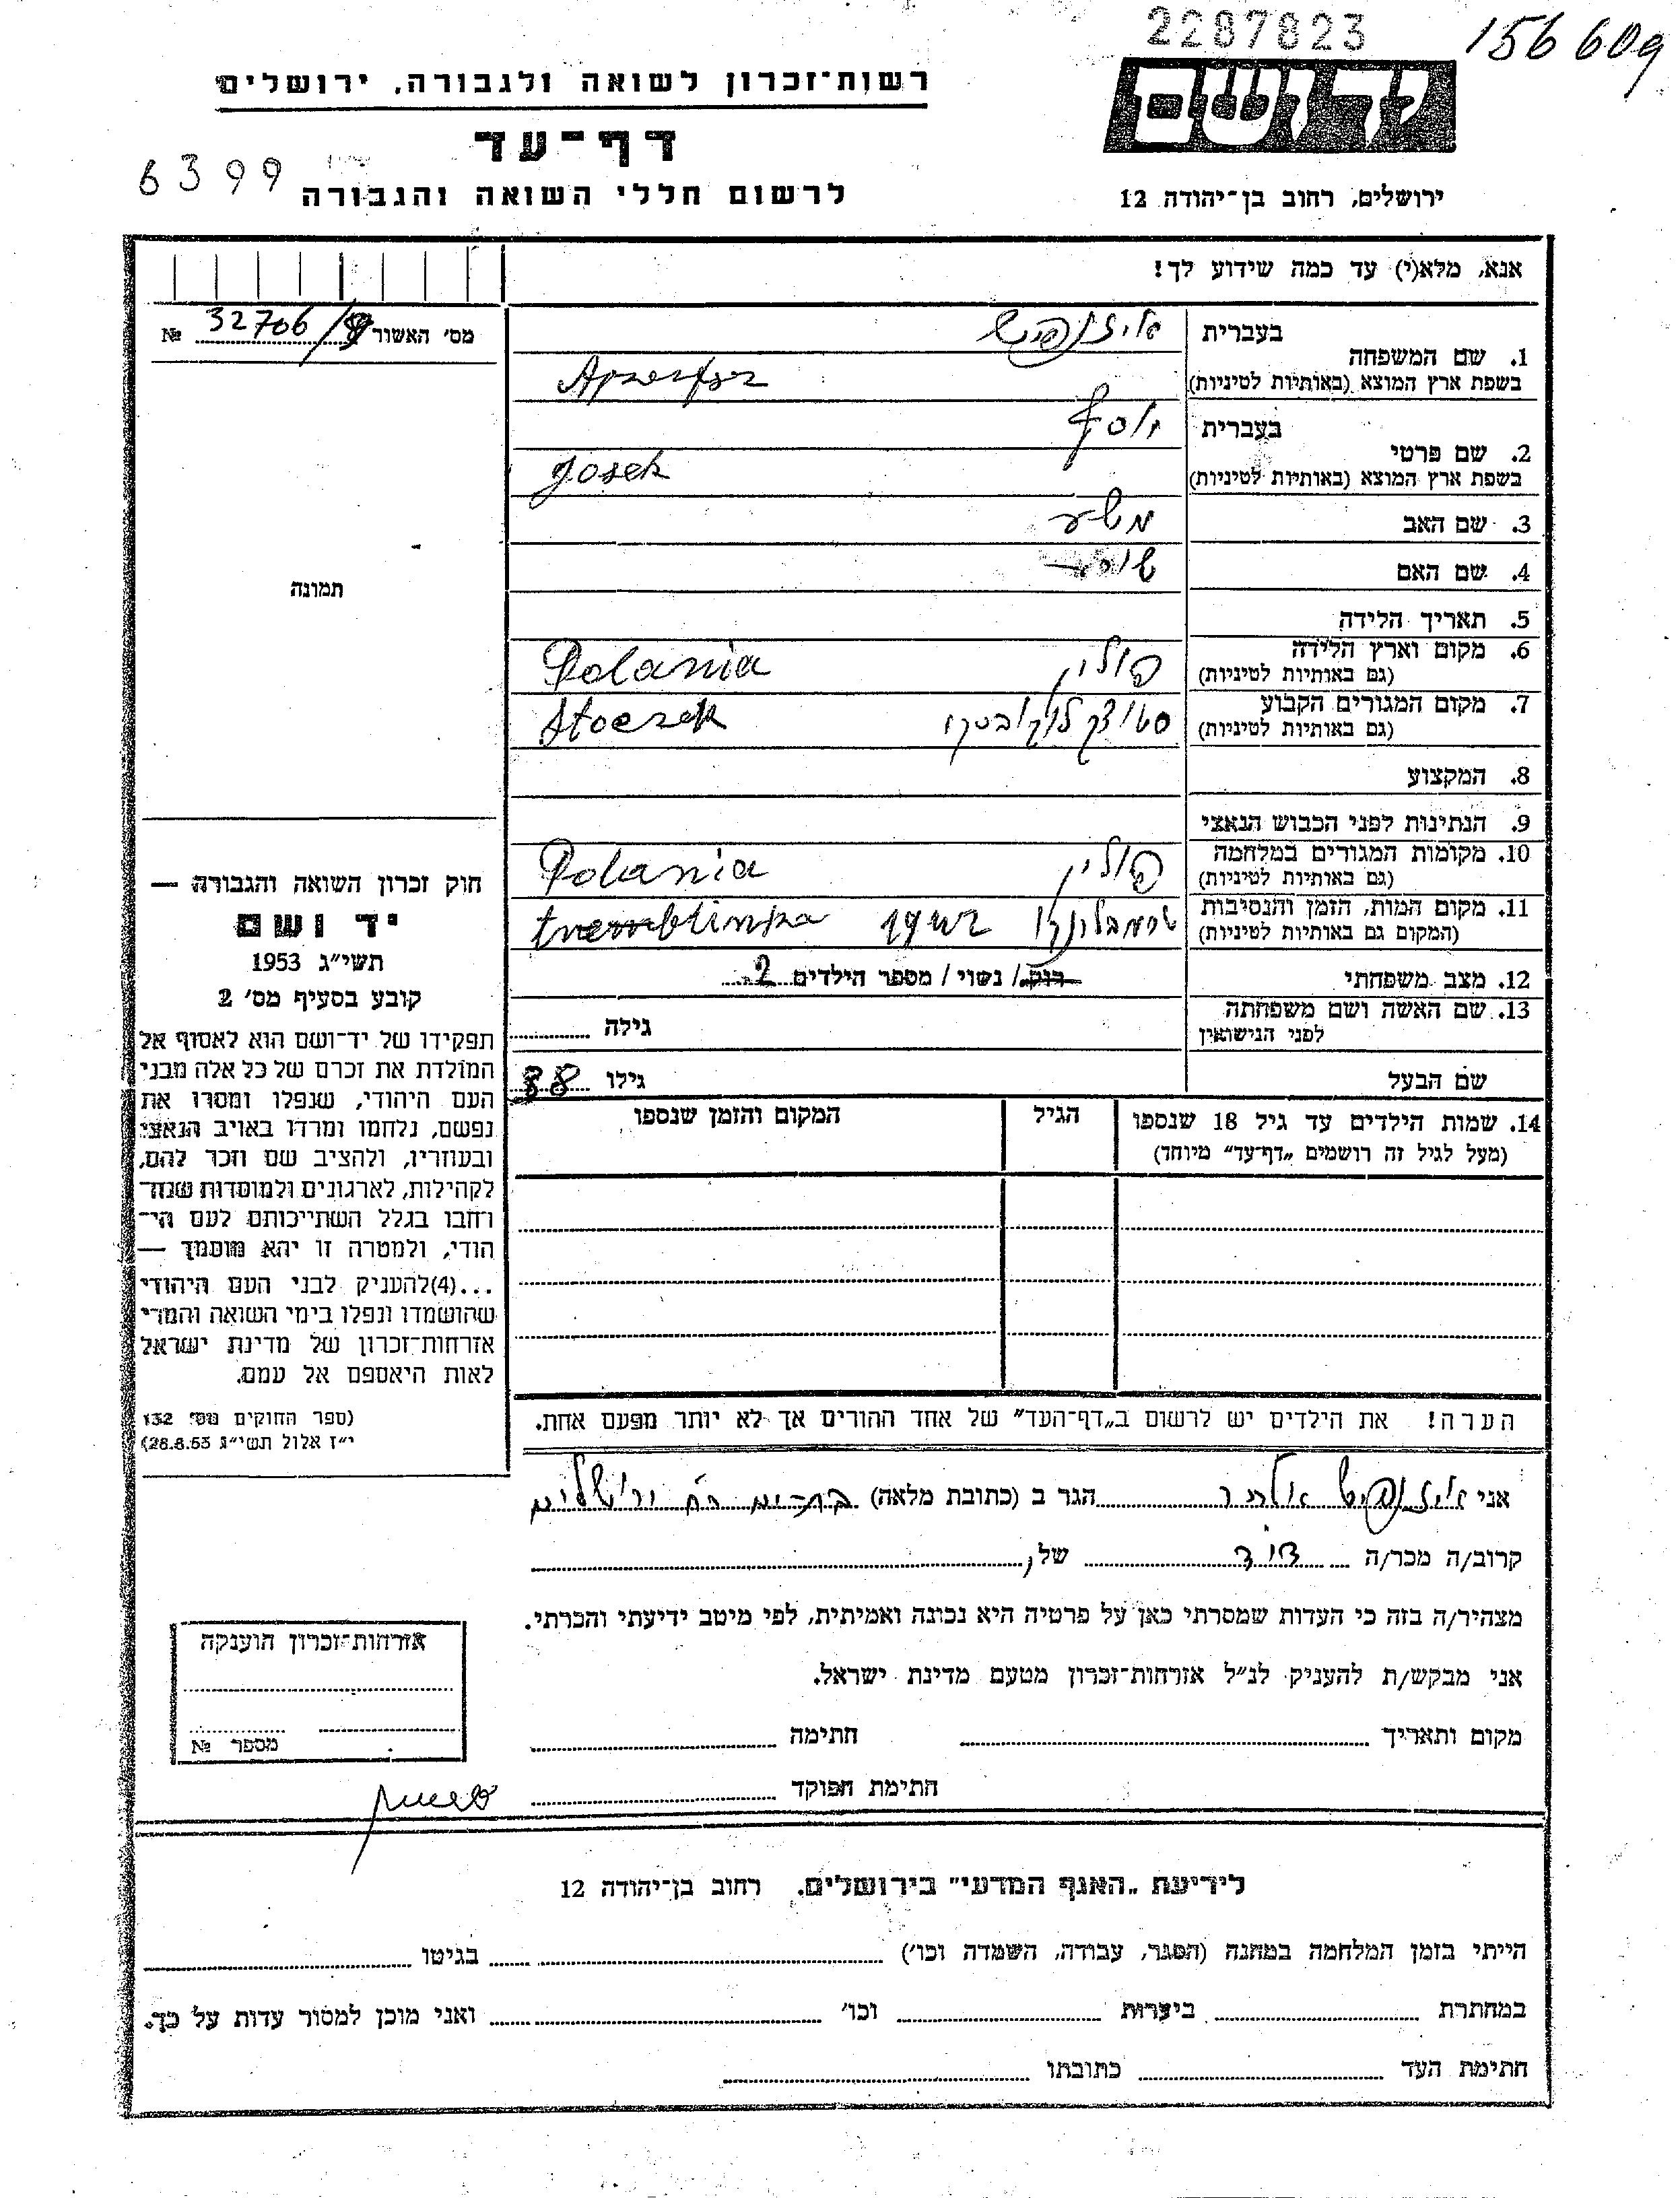 2287823
156609
יד ושם
ירושלים, רחוב בן־יהודה 12
רשות־זכרון לשואה ולגבורה, ירושלים
דף־עד
6399
לרשום חללי השואה והגבורה
אנא, מלא(י) עד כמה שידוע לך!
מס׳ האשור 32706/ №
1. שם המשפחה
בעברית
בשפת ארץ המוצא (באותיות לטיניות)
2. שם פרטי
בעברית יוסף
בשפת ארץ המוצא (באותיות לטיניות) Josek
3. שם האב
4. שם האם
5. תאריך הלידה
6. מקום וארץ הלידה פולין Polania
(גם באותיות לטיניות)
7. מקום המגורים הקבוע Stoczek
(גם באותיות לטיניות)
8. המקצוע
9. הנתינות לפני הכבוש הנאצי
10. מקומות המגורים במלחמה פולין Polania
(גם באותיות לטיניות)
11. מקום המות, הזמן והנסיבות 1942
(המקום גם באותיות לטיניות)
12. מצב משפחתי רוק/ נשוי / מספר הילדים 2
13. שם האשה ושם משפחתה
לפני הנישואין
גילה
שם הבעל
גילו 38
14. שמות הילדים עד גיל 18 שנספו הגיל המקום והזמן שנספו
(מעל לגיל זה רושמים „דף־עד״ מיוחד)
הערה! את הילדים יש לרשום ב„דף־העד״ של אחד ההורים אך לא יותר מפעם אחת.
תמונה
חוק זכרון השואה והגבורה —
יד ושם
תשי״ג 1953
קובע בסעיף מס׳ 2
תפקידו של יד־ושם הוא לאסוף אל
המולדת את זכרם של כל אלה מבני
העם היהודי, שנפלו ומסרו את
נפשם, נלחמו ומרדו באויב הנאצי
ובעוזריו, ולהציב שם וזכר להם,
לקהילות, לארגונים ולמוסדות שנח־
רחבו בגלל השתייכותם לעם הי־
הודי, ולמטרה זו יהא מוסמך —
...(4)להעניק לבני העם היהודי
שהושמדו ונפלו בימי השואה והמרי
אזרחות־זכרון של מדינת ישראל
לאות היאספם אל עמם.
(ספר החוקים מס׳ 132
י״ז אלול תשי״ג 28.8.53)
אני הגר ב (כתובת מלאה)
קרוב/ה מכר/ה דוד של,
מצהיר/ה בזה כי העדות שמסרתי כאן על פרטיה היא נכונה ואמיתית, לפי מיטב ידיעתי והכרתי.
אני מבקש/ת להעניק לנ״ל אזרחות־זכרון מטעם מדינת ישראל.
מקום ותאריך חתימה
חתימת הפוקד
אזרחות־זכרון הוענקה
מספר №
לידיעת „האגף המדעי״ בירושלים. רחוב בן־יהודה 12
הייתי בזמן המלחמה במחנה (הסגר, עבודה, השמדה וכו׳) בגיטו
במחתרת ביערות וכו׳ ואני מוכן למסור עדות על כך.
חתימת העד כתובתו